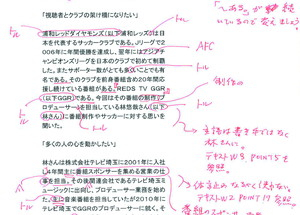 「視聴者とクラブの架け橋になりたい」
浦和レッドダイヤモンズ(以下浦和レッズ)は日
本を代表するサッカークラブである。Jリーグで2
006年に年間優勝を達成し、翌年にはアジアチ
ャンピオンズリーグを日本のクラブで初めて制覇
した。またサポーター数がとても多いことでも有
名である。そのクラブを前身番組合め20年間応
援し続けている番組がある。REDS TV GGR
(以下GGR)である。今回はその番組の制作プ
ロデューサーを担当している林悠哉さん(以下
林さん)に番組制作やサッカーに対する思いを
聞いた。
「多くの人の心を動かしたい」
林さんは株式会社テレビ埼玉に2001年に入社
し4年間主に番組スポンサーを集める営業の仕
事を担当。その後関連会社であるテレビ埼玉ミ
ュージックに出向し、プロデューサー業務を始め
た。主に音楽番組を担当していたが2010年に
テレビ埼玉でGGRのプロデューサーに就く。そ
トル
トル
AFC
制作の
トル
主語は書き手ではなく
林さんに。
テキストW8 POINT5を
参照。
体言止めはなるべく使わない。
テキストW2 POINT19
参照。
トル